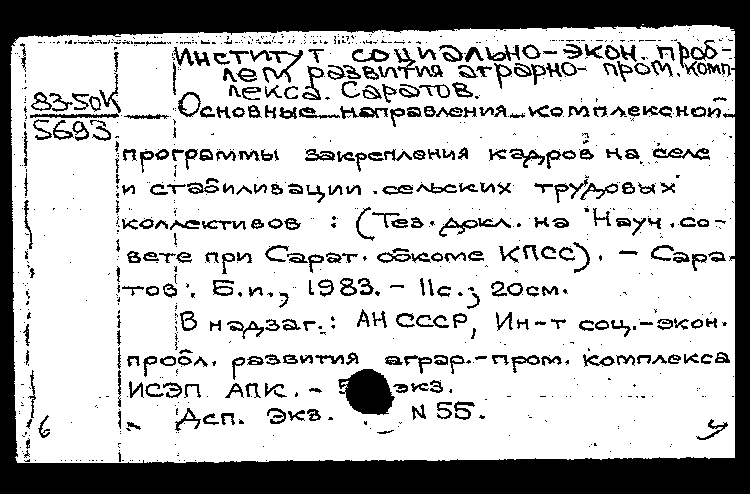 Институт социально-экон. проб-
лем развития аграрно-пром. комп-
лекса. Саратов.
83-50К
5693
Основные направления комплексной
программы закрепления кадров на селе
и стабилизации сельских трудовых
коллективов : (Тез. докл. на Науч. со-
вете при Сарат. обкоме КПСС). - Сара-
тов : Б.и., 1983. - 11с.; 20см.
В надзаг.: АН СССР, Ин-т соц.-экон.
пробл. развития аграр.-пром. комплекса
ИСЭП АПК. - экз.
Дсп. Экз. N 55.
б